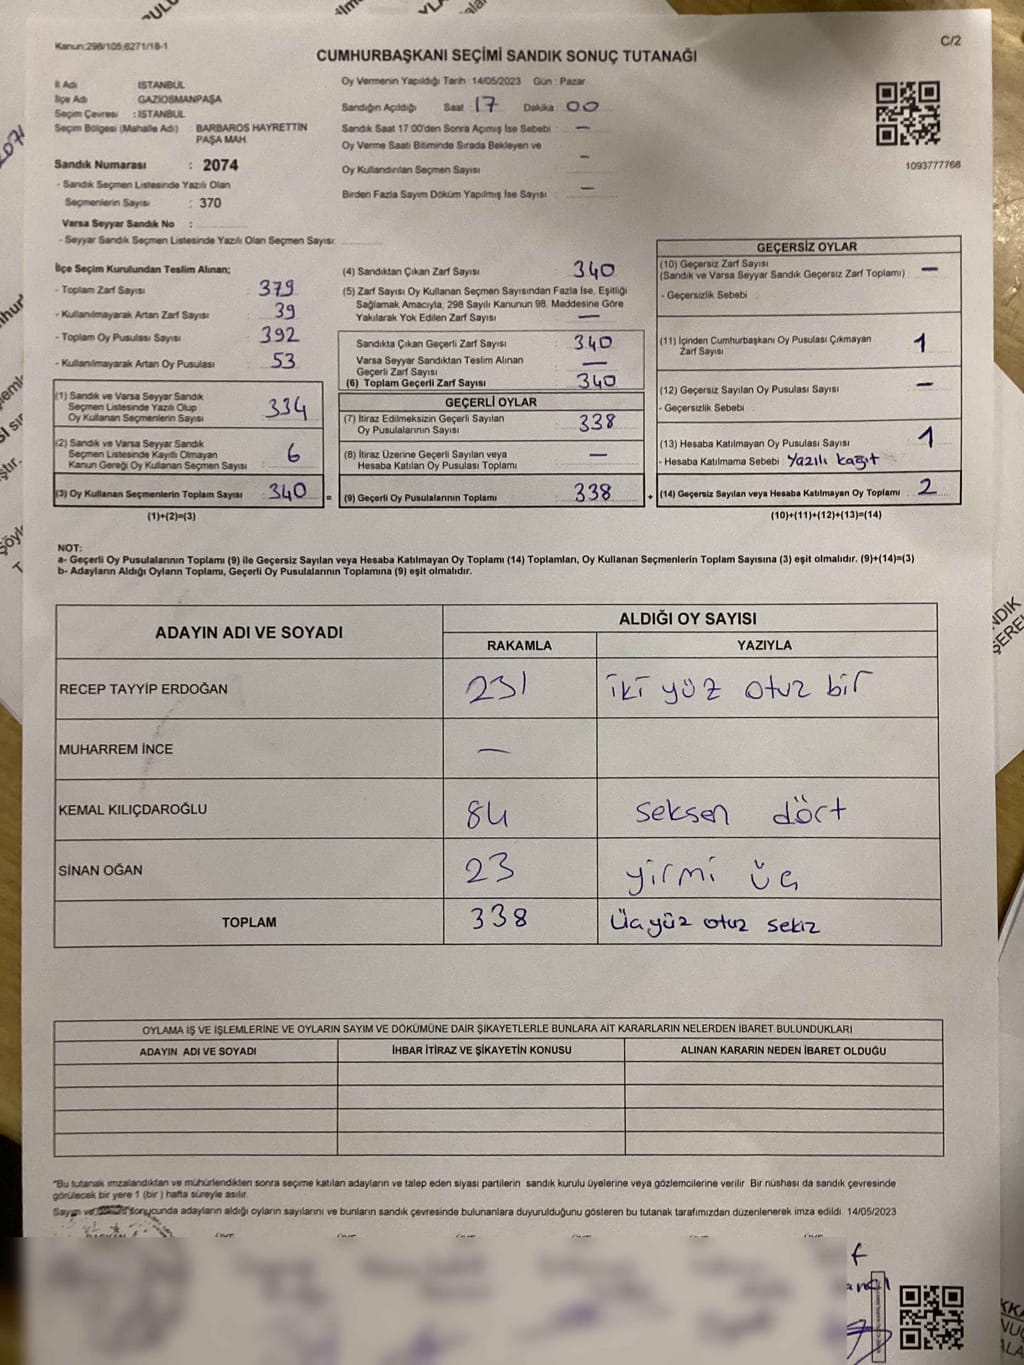 Kanun:298/105;6271/18-1
C/2
CUMHURBAŞKANI SEÇİMİ SANDIK SONUÇ TUTANAĞI
İl Adı İSTANBUL
İlçe Adı GAZİOSMANPAŞA
Seçim Çevresi : İSTANBUL
Seçim Bölgesi (Mahalle Adı) BARBAROS HAYRETTİN
PAŞA MAH.
Sandık Numarası : 2074
- Sandık Seçmen Listesinde Yazılı Olan
Seçmenlerin Sayısı : 370
Varsa Seyyar Sandık No :
- Seyyar Sandık Seçmen Listesinde Yazılı Olan Seçmen Sayısı:
Oy Vermenin Yapıldığı Tarih :14/05/2023 Gün : Pazar
Sandığın Açıldığı Saat : 17 Dakika : 00
Sandık Saat 17:00'den Sonra Açımış İse Sebebi : —
Oy Verme Saati Bitiminde Sırada Bekleyen ve
Oy Kullandırılan Seçmen Sayısı —
Birden Fazla Sayım Döküm Yapılmış İse Sayısı : —
1093777768
İlçe Seçim Kurulundan Teslim Alınan;
- Toplam Zarf Sayısı 379
- Kullanılmayarak Artan Zarf Sayısı 39
- Toplam Oy Pusulası Sayısı 392
- Kullanılmayarak Artan Oy Pusulası 53
(1) Sandık ve Varsa Seyyar Sandık
Seçmen Listesinde Yazılı Olup
Oy Kullanan Seçmenlerin Sayısı 334
(2) Sandık ve Varsa Seyyar Sandık
Seçmen Listesinde Kayıtlı Olmayan
Kanun Gereği Oy Kullanan Seçmen Sayısı 6
(3) Oy Kullanan Seçmenlerin Toplam Sayısı 340
(1)+(2)=(3)
(4) Sandıktan Çıkan Zarf Sayısı 340
(5) Zarf Sayısı Oy Kullanan Seçmen Sayısından Fazla İse, Eşitliği
Sağlamak Amacıyla; 298 Sayılı Kanunun 98. Maddesine Göre
Yakılarak Yok Edilen Zarf Sayısı —
Sandıkta Çıkan Geçerli Zarf Sayısı 340
Varsa Seyyar Sandıktan Teslim Alınan
Geçerli Zarf Sayısı —
(6) Toplam Geçerli Zarf Sayısı 340
GEÇERLİ OYLAR
(7) İtiraz Edilmeksizin Geçerli Sayılan
Oy Pusulalarının Sayısı 338
(8) İtiraz Üzerine Geçerli Sayılan veya
Hesaba Katılan Oy Pusulası Toplamı —
= (9) Geçerli Oy Pusulalarının Toplamı 338 +
GEÇERSİZ OYLAR
(10) Geçersiz Zarf Sayısı
(Sandık ve Varsa Seyyar Sandık Geçersiz Zarf Toplamı) —
- Geçersizlik Sebebi
(11) İçinden Cumhurbaşkanı Oy Pusulası Çıkmayan
Zarf Sayısı 1
(12) Geçersiz Sayılan Oy Pusulası Sayısı —
- Geçersizlik Sebebi
(13) Hesaba Katılmayan Oy Pusulası Sayısı 1
- Hesaba Katılmama Sebebi : Yazılı kağıt
(14) Geçersiz Sayılan veya Hesaba Katılmayan Oy Toplamı 2
(10)+(11)+(12)+(13)=(14)
NOT:
a- Geçerli Oy Pusulalarının Toplamı (9) ile Geçersiz Sayılan veya Hesaba Katılmayan Oy Toplamı (14) Toplamları, Oy Kullanan Seçmenlerin Toplam Sayısına (3) eşit olmalıdır. (9)+(14)=(3)
b- Adayların Aldığı Oyların Toplamı, Geçerli Oy Pusulalarının Toplamına (9) eşit olmalıdır.
ADAYIN ADI VE SOYADI ALDIĞI OY SAYISI
RAKAMLA YAZIYLA
RECEP TAYYİP ERDOĞAN 231 iki yüz otuz bir
MUHARREM İNCE —
KEMAL KILIÇDAROĞLU 84 seksen dört
SİNAN OĞAN 23 yirmi üç
TOPLAM 338 üçyüz otuz sekiz
OYLAMA İŞ VE İŞLEMLERİNE VE OYLARIN SAYIM VE DÖKÜMÜNE DAİR ŞİKAYETLERLE BUNLARA AİT KARARLARIN NELERDEN İBARET BULUNDUKLARI
ADAYIN ADI VE SOYADI İHBAR İTİRAZ VE ŞİKAYETİN KONUSU ALINAN KARARIN NEDEN İBARET OLDUĞU
"Bu tutanak imzalandıktan ve mühürlendikten sonra seçime katılan adayların ve talep eden siyasi partilerin sandık kurulu üyelerine veya gözlemcilerine verilir Bir nüshası da sandık çevresinde
görülecek bir yere 1 (bir ) hafta süreyle asılır.
Sayım ve sonucunda adayların aldığı oyların sayılarını ve bunların sandık çevresinde bulunanlara duyurulduğunu gösteren bu tutanak tarafımızdan düzenlenerek imza edildi. 14/05/2023